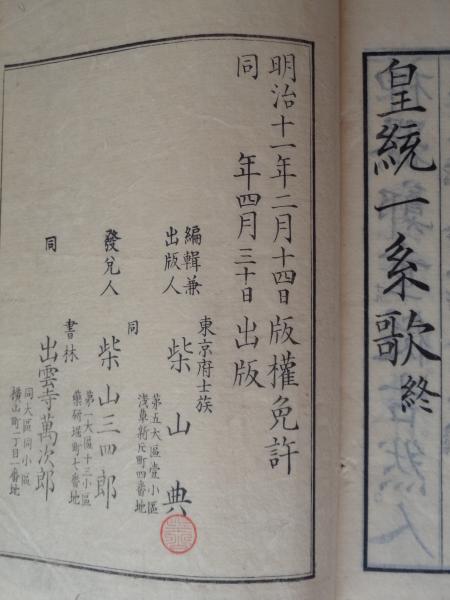 皇統一系歌終
明治十一年二月十四日版權免許
同年四月三十日出版
編輯兼
出版人
東京府士族
柴山典
第五大區壹小區
淺草新片町四番地
發兌人
同
柴山三四郎
第一大區十三小區
藥研堀町七番地
同
書林
出雲寺萬次郎
同大區同小區
橫山町一丁目一番地